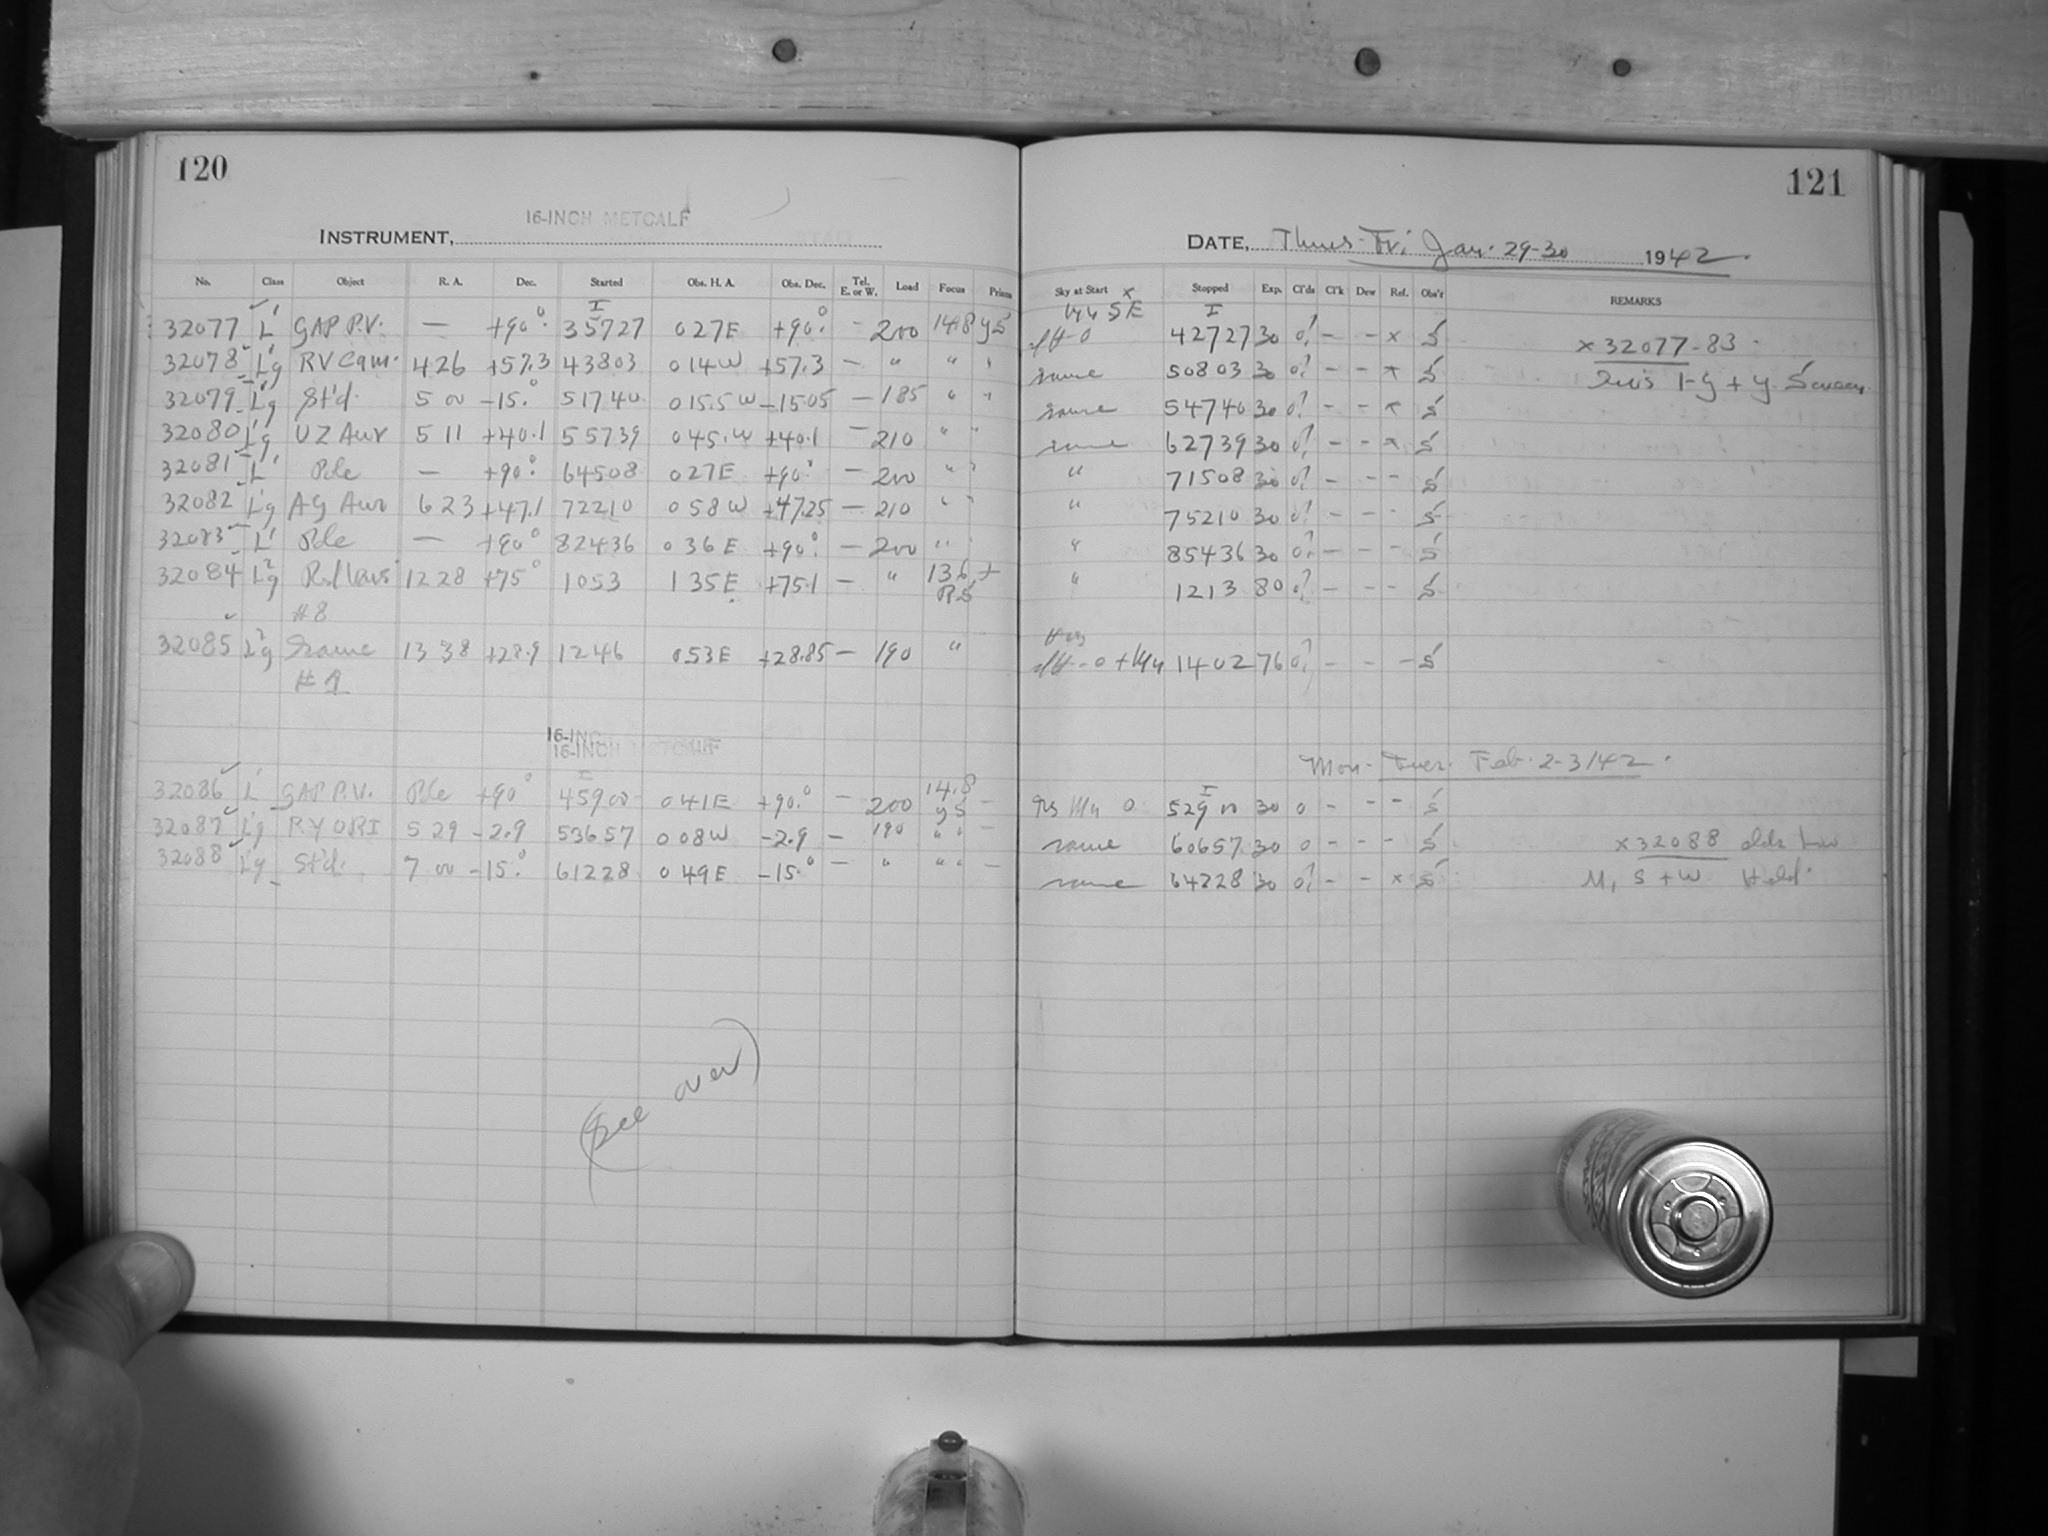 120
16-INCH METCALF
INSTRUMENT,
No. Class Object R. A. Dec. Started Obs. H. A. Obs. Dec. Tel. E. or W. Load Focus Prism
I
32077 L' GAP P.V. — +90° 35727 027E +90° - 200 14.8 YS
32078 L'g RV Cam. 426 +57.3 43803 014W +57.3 — " " "
32079 L'g St'd. 5 00 -15.° 51740 015.5W -15.05 — 185 " "
32080 L'g UZ Aur 5 11 +40.1 55739 045.W +40.1 — 210 " "
32081 L' Pole — +90° 64508 027E +90° — 200 " "
32082 L'g AG Aur 623 +47.1 72210 058W +47.25 — 210 " "
32083 L' Pole — +90° 82436 036E +90° — 200 " "
32084 L²g 1228 +75° 1053 135E +75.1 — " 13.6 RS
#8
32085 L²g Same 1338 +28.9 1246 053E +28.85 — 190 "
#9
16-INC
16-INCH METCALF
I
32086 L' GAP P.V. Pole +90° 45900 041E +90.° — 200 14.8 YS —
32087 L'g RY ORI 529 -2.9 53657 008W -2.9 — 190 " " —
32088 L'g St'd. 7 00 -15.° 61228 049E -15.° — " " " —
(see over)
121
DATE, Thurs-Fri Jan. 29-30 1942.
Sky at Start Stopped Exp. Cl'ds Cl'k Dew Ref. Obs'r REMARKS
x SE I
42727 30 0? — — x S
same 50803 30 0? — — x S
same 54740 30 0? — — x S
same 62739 30 0? — — x S
" 71508 30 0? — — - S
" 75210 30 0? — — - S
" 85436 30 0? — — - S
" 1213 80 0? — — - S
1402 76 0? — — — S
x 32077-83.
1-g + y. Screen
Mon-Tues. Feb. 2-3/42.
I
0 52900 30 0 - - - S
same 60657 30 0 - - - S
same 64228 30 0? - - x S
x 32088
M, S + W. Held.